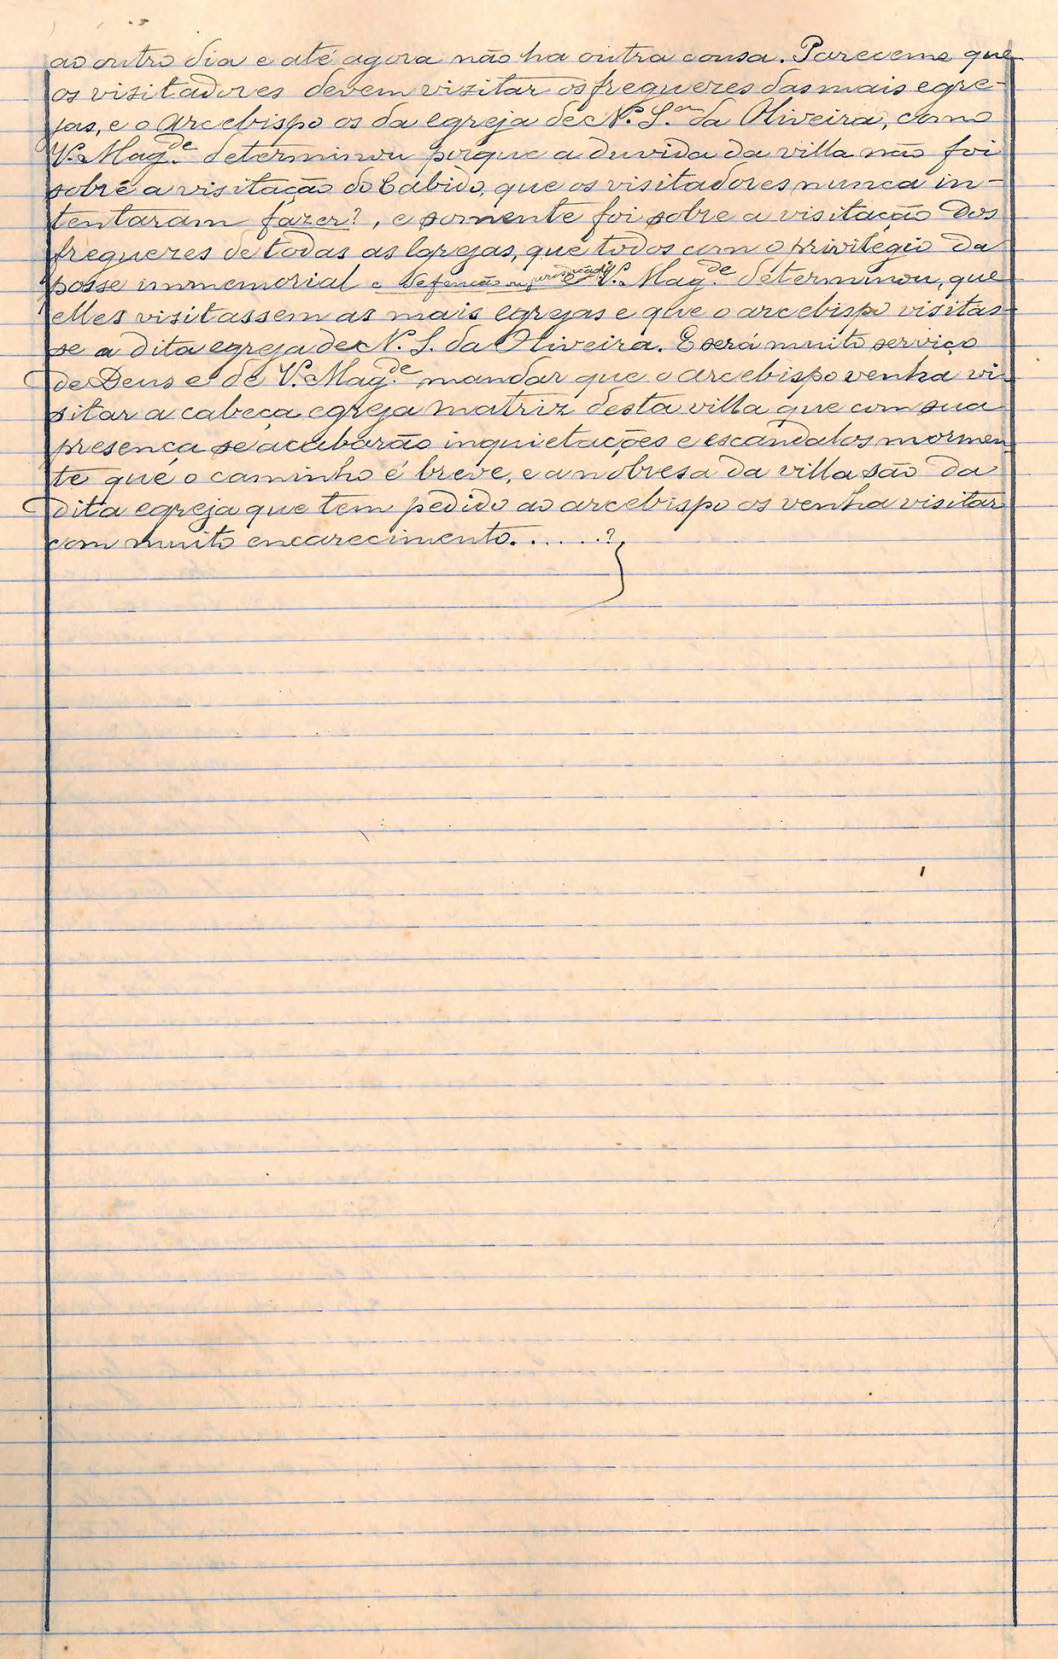 ao outro dia e até agora não ha outra cousa. Pareceme que
os visitadores devem vizitar os freguezes das mais egre-
jas, e o Arcebispo os da egreja de N. S.ra da Oliveira, como
V. Mag.de determinou porque a duvida da villa não foi
sobre a visitação do Cabido, que os visitadores nunca in-
tentaram fazer?, e somente foi sobre a visitação dos
freguezes de todas as Igrejas, que todos com o privilegio da
posse immemorial e V. Mag.de determinou, que
elles visitassem as mais egrejas e que o arcebispo visitas-
se a dita egreja de N. S. da Oliveira. E será muito serviço
de Deus e de V. Mag.de mandar que o arcebispo venha vi-
sitar a cabeça egreja matriz desta villa que com sua
presença se acabarão inquietações e escandalos mormen-
te que o caminho é breve, e a nobresa da villa são da
dita egreja que tem pedido ao arcebispo os venha visitar
com muito encarecimento. . . . . . ?